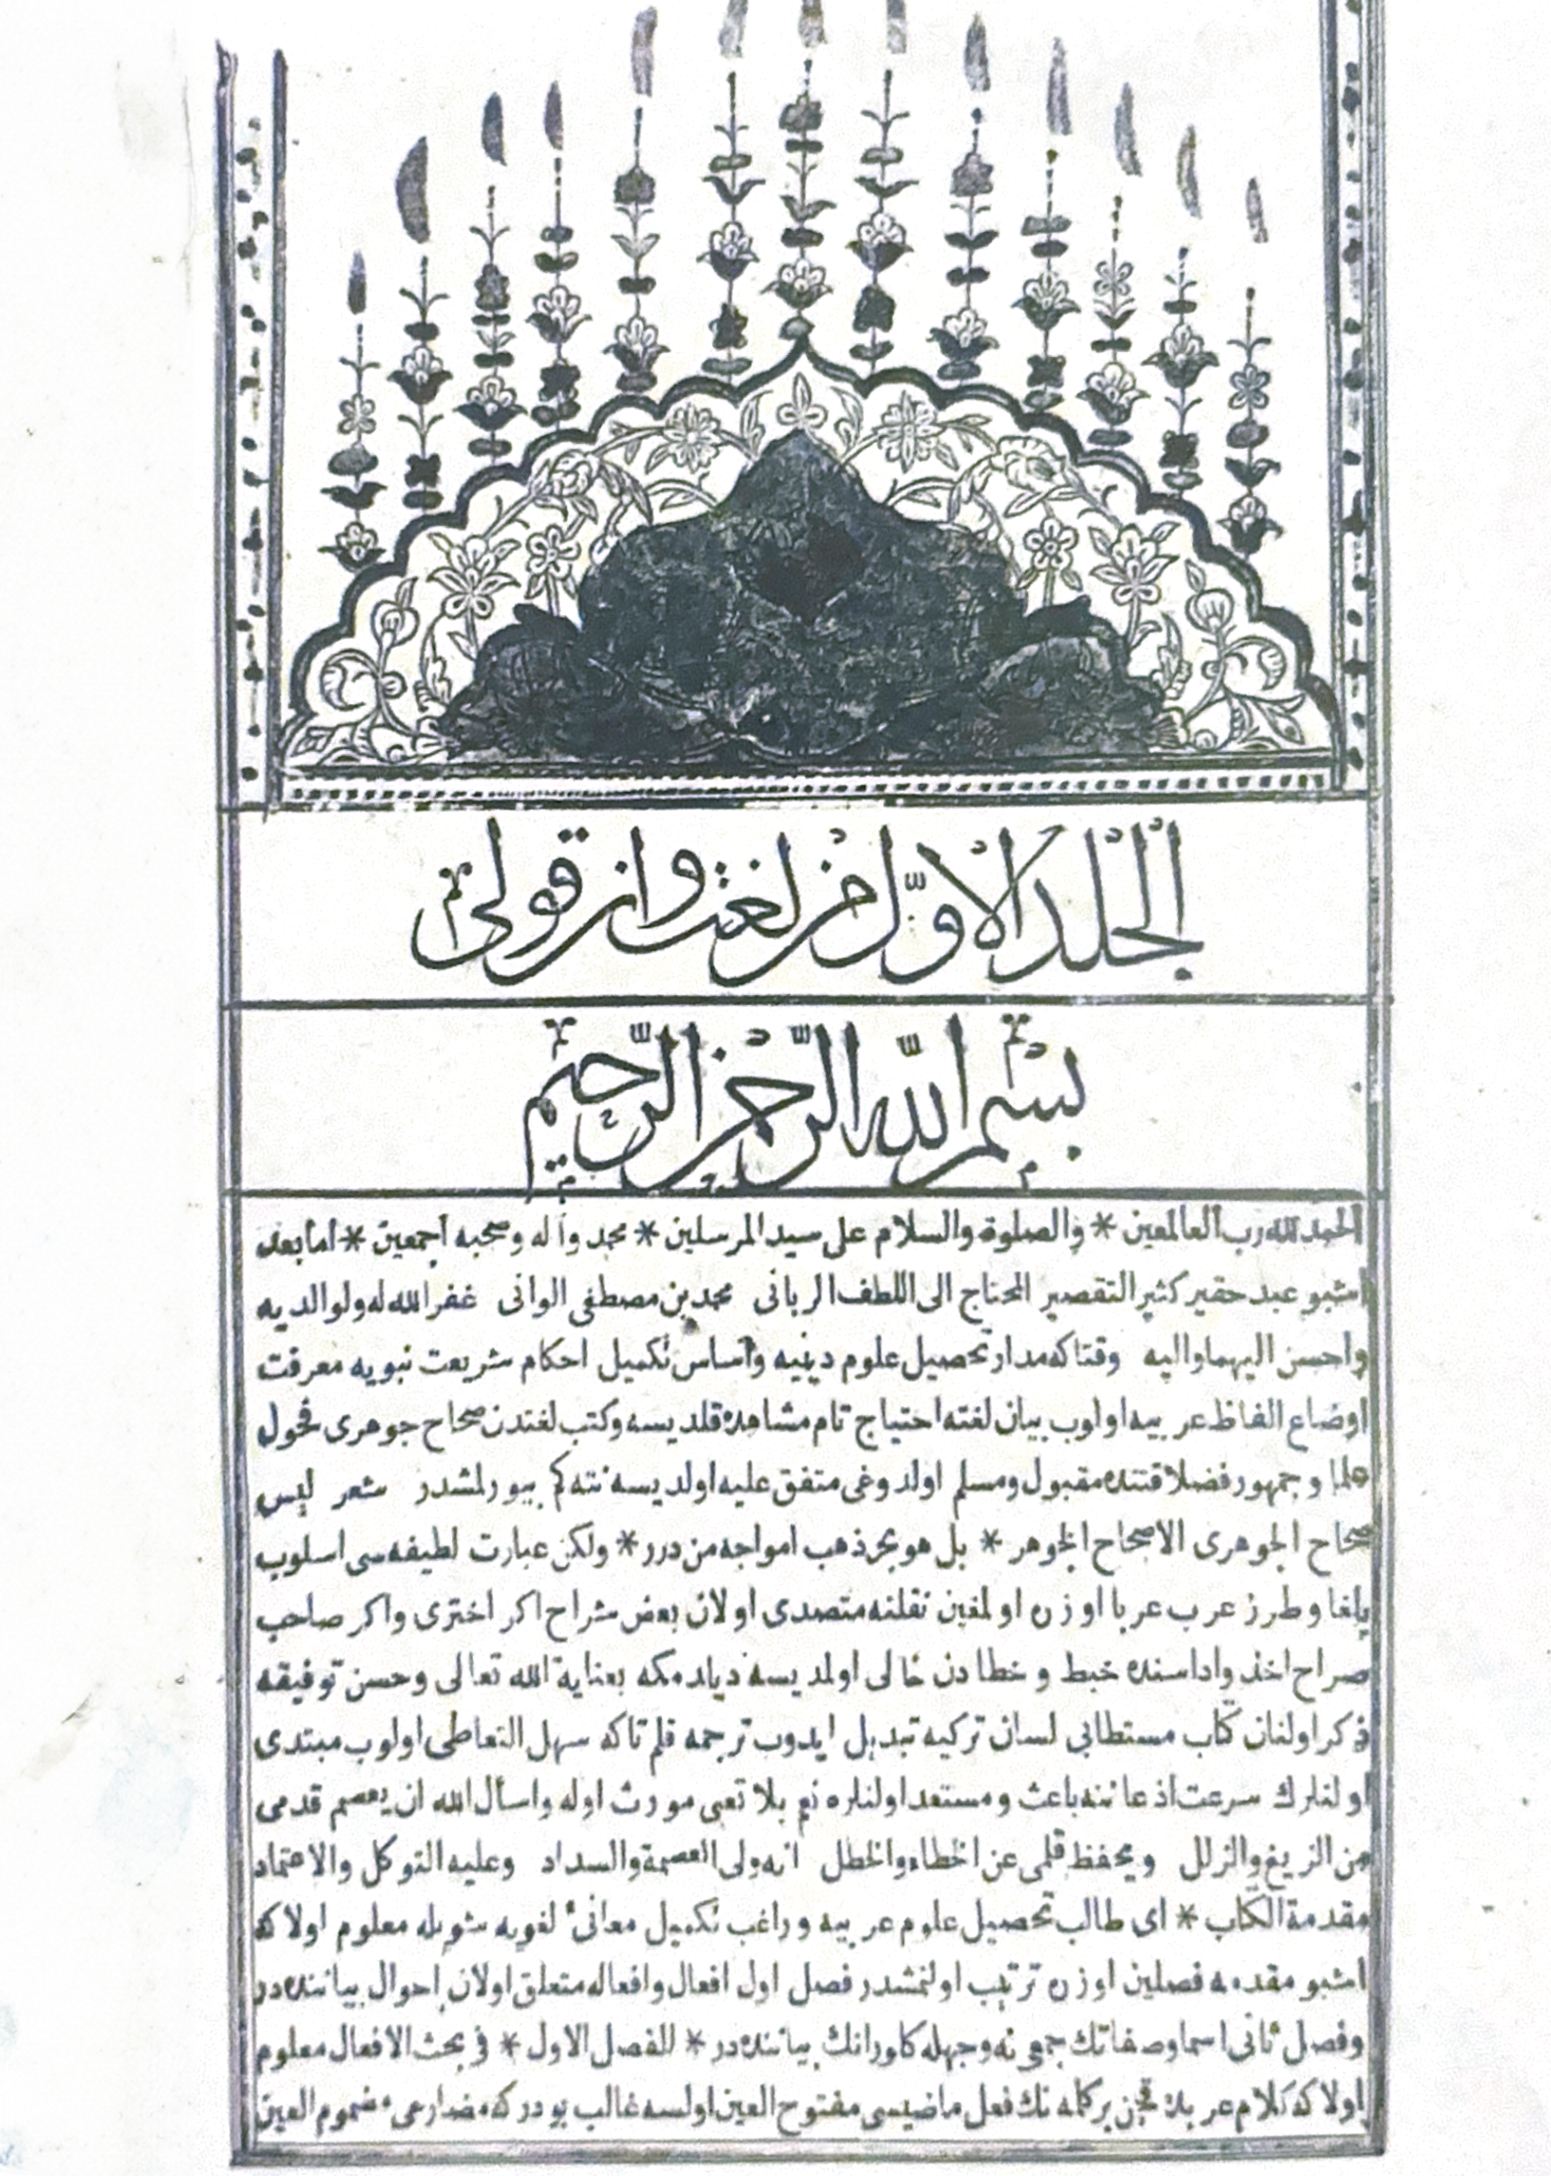 الجلد الاول من لغت وانقولى
بسم الله الرحمن الرحيم
الحمد لله رب العالمين * والصلوة والسلام على سيد المرسلين * محمد وآله وصحبه اجمعين * اما بعد
اشبو عبد حقير كثير التقصير المحتاج الى اللطف الربانى محمد بن مصطفى الوانى غفر الله له ولوالديه
واحسن اليهما واليه وقتاكه مدار تحصيل علوم دينيه واساس تكميل احكام شريعت نبويه معرفت
اوضاع الفاظ عربيه اولوب بيان لغته احتياج تام مشاهده قلديسه وكتب لغتدن صحاح جوهرى فحول
علما وجمهور فضلا قتنده مقبول ومسلم اولدوغى متفق عليه اولديسه نته كم بيورلمشدر شعر ليس
صحاح الجوهرى الا صحاح الجوهر * بل هو بحر ذهب امواجه من درر * ولكن عبارت لطيفه سى اسلوب
بلغا وطرز عرب عربا اوزره اولمغين نقلنه متصدى اولان بعض شراح اكر اخترى واكر صاحب
صراح اخذ واداسنده خبط وخطادن خالى اولمديسه ديلدمكه بعناية الله تعالى وحسن توفيقه
ذكر اولنان كتاب مستطابى لسان تركيه تبديل ايدوب ترجمه قلم تاكه سهل التعاطى اولوب مبتدى
اولنلرك سرعت اذعاننه باعث ومستعد اولنلره نعم بلا تعبى مورث اوله واسأل الله ان يعصم قدمى
من الزيغ والزلل ويحفظ قلمى عن الخطاء والخطل انه ولى العصمة والسداد وعليه التوكل والاعتماد
مقدمة الكتاب * اى طالب تحصيل علوم عربيه وراغب تكميل معانئ لغويه شويله معلوم اولا كه
اشبو مقدمه فصلين اوزره ترتيب اولنمشدر فصل اول افعال وافعاله متعلق اولان احوال بياننده در
وفصل ثانى اسما وصفاتك جمعى نه وجهله كلورانك بياننده در * الفصل الاول * فى بحث الافعال معلوم
اولا كه كلام عربده قچن بركلمه نك فعل ماضيسى مفتوح العين اولسه غالب بودركه مضارعى مضموم العين